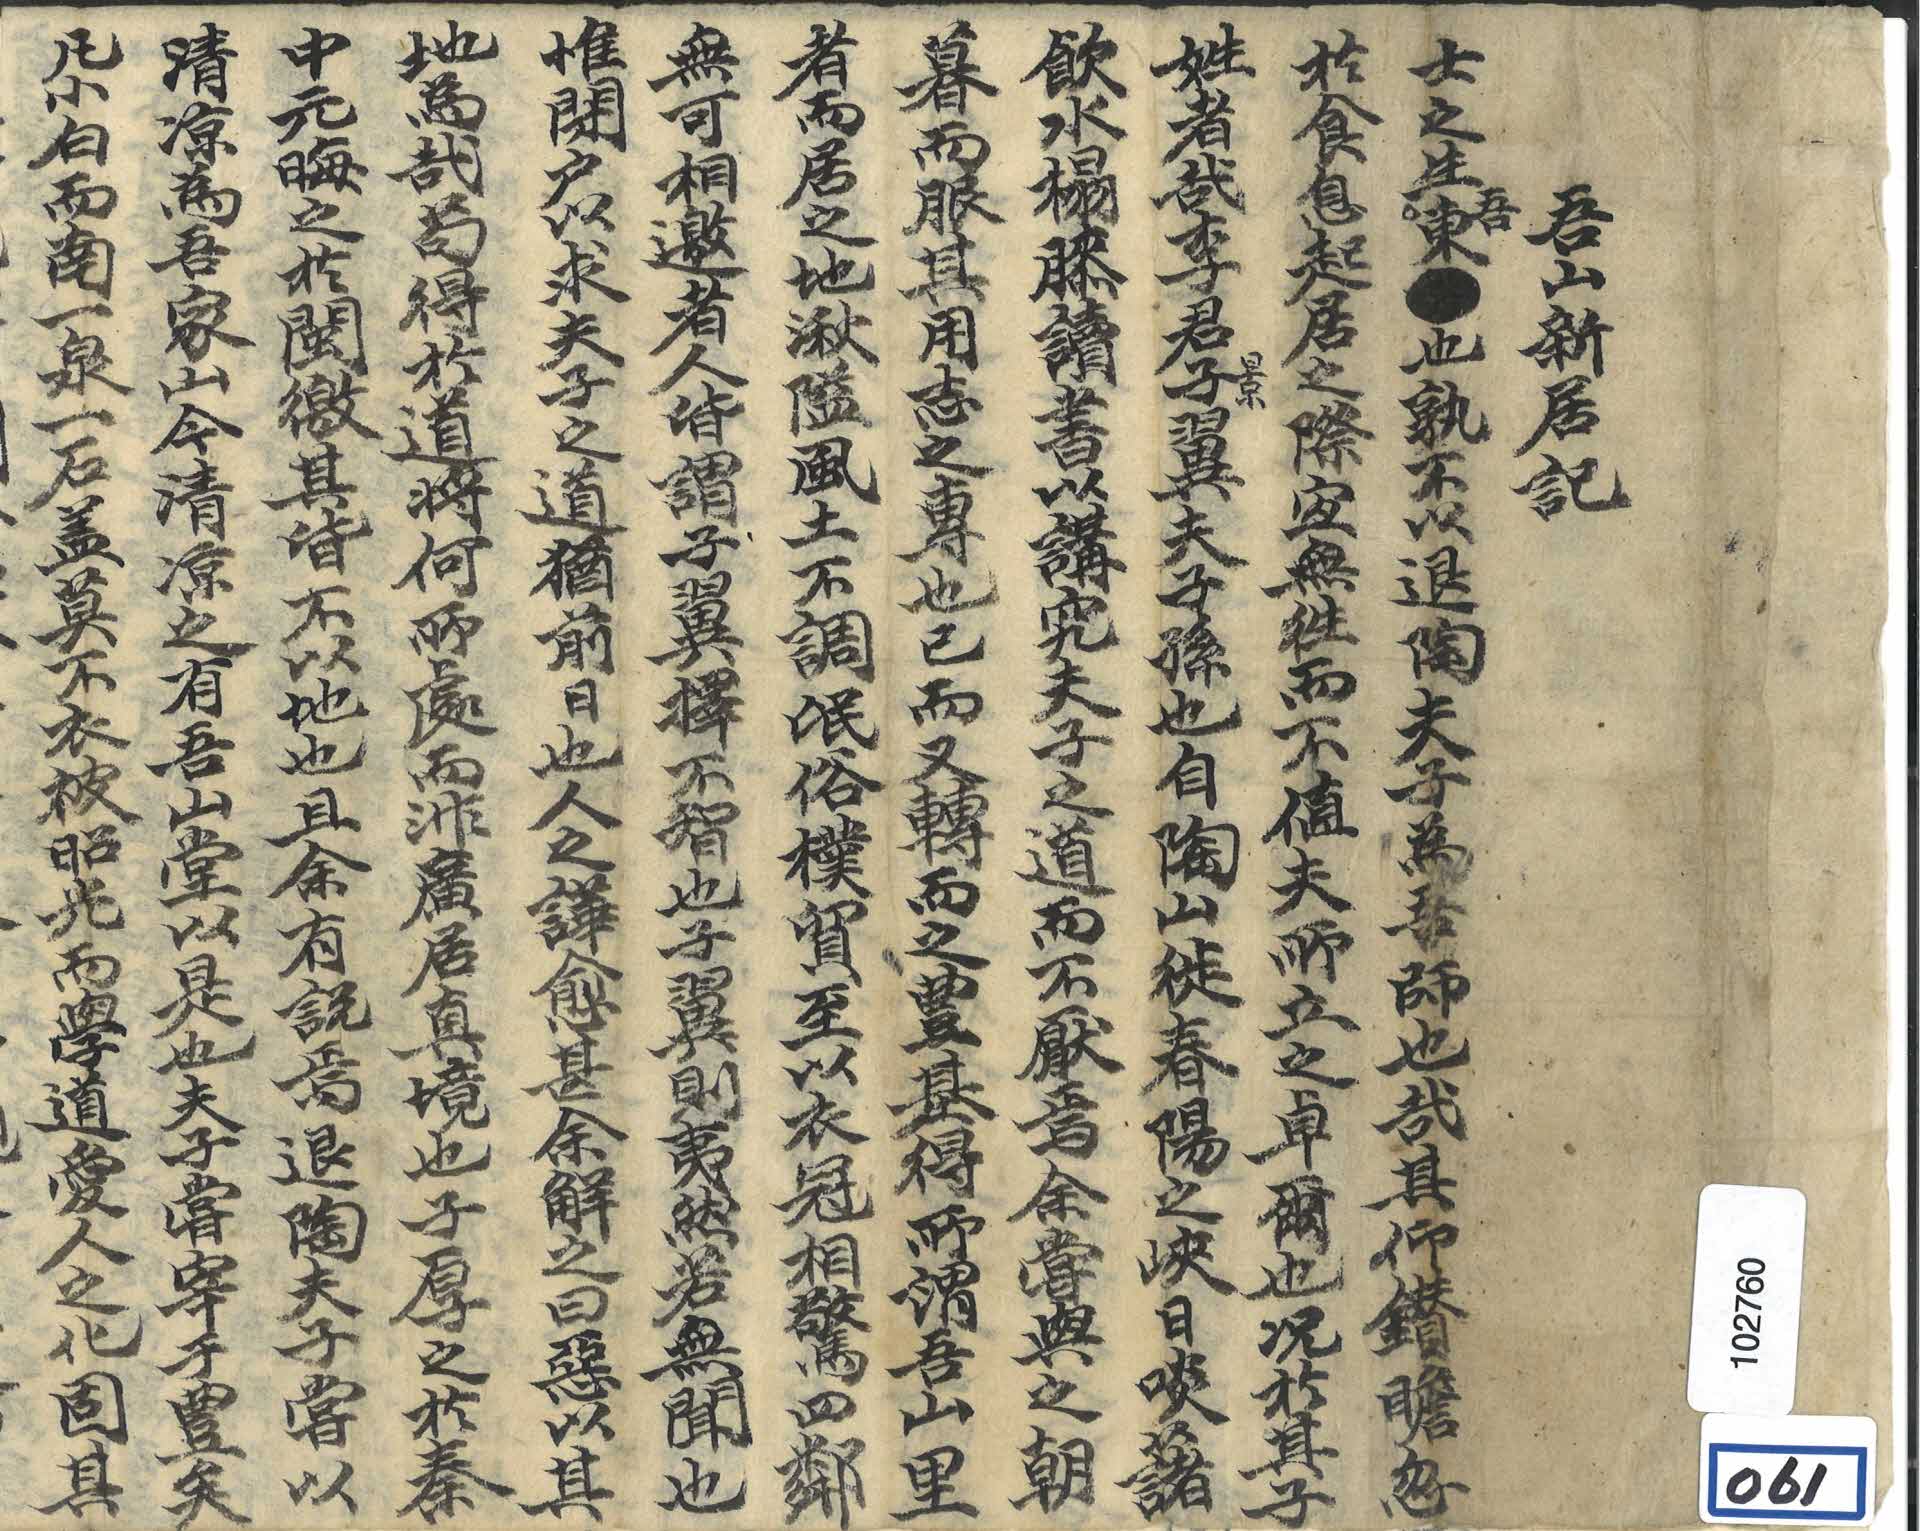 吾山新居記
士之生吾東●也孰不以退陶夫子爲吾師也哉其仰鑽瞻忽
於食息起居之際宜無往而不值夫所立之卓爾也况於其子
姓者哉李君子翼景夫子孫也自陶山徙春陽之峽日啖藷
飮水榻膝讀書以講究夫子之道而不厭焉余嘗與之朝
暮而服其用志之專也已而又轉而之豊基得所謂吾山里
者而居之地湫隘風土不調氓俗樸貿至以衣冠相驚四鄰
無可相邀者人皆謂子翼擇不智也子翼則夷然若無聞也
惟閉戶以求夫子之道猶前日也人之譁愈甚余解之曰惡以其
地爲哉苟得於道將何所處而非廣居真境也子厚之於秦
中元晦之於閩徼其皆不以地也且余有說焉退陶夫子嘗以
清凉爲吾家山今清凉之有吾山堂以是也夫子嘗宰于豊矣
凡小白而南一泉一石盖莫不衣被昭光而學道愛人之化固其